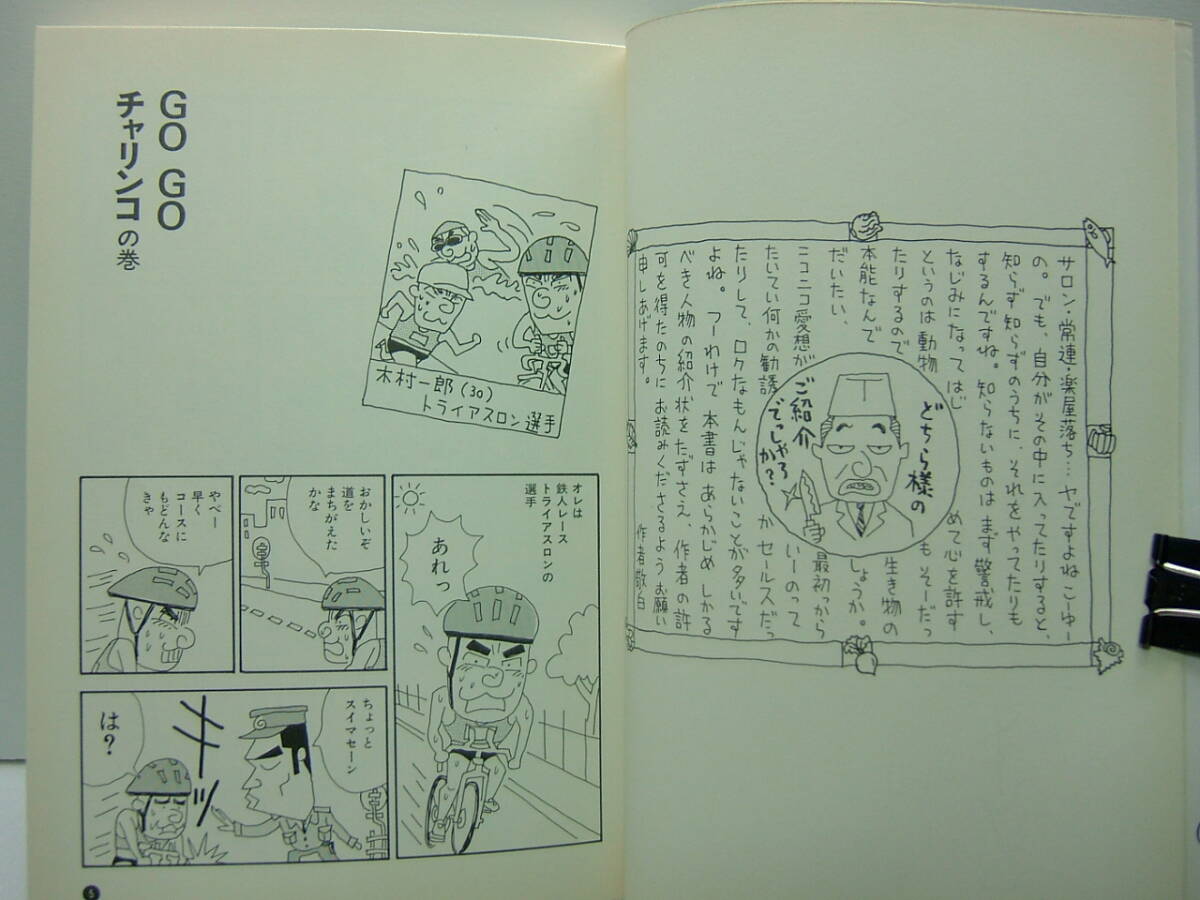 サロン・常連・楽屋落ち…ヤですよねこーゆー
の。でも、自分がその中に入ってたりすると、
知らず知らずのうちに、それをやってたりも
するんですね。知らないものはまず警戒し、
なじみになってはじめて心を許す
というのは動物もそーだっ
たりするので生き物の
本能なんでしょうか。
だいたい、最初から
ニコニコ愛想がいーのって
たいてい何かの勧誘かセールスだっ
たりして、ロクなもんじゃないことが多いです
よね。つーわけで本書はあらかじめしかる
べき人物の紹介状をたずさえ、作者の許
可を得たのちにお読みくださるようお願い
申しあげます。
作者敬白
どちら様の
ご紹介
でっしゃろ
か?
GO GO
チャリンコの巻
木村一郎(30)
トライアスロン選手
オレは
鉄人レース
トライアスロンの
選手
あれっ
おかしいぞ
道を
まちがえた
かな
やべー
早く
コースに
もどんな
きゃ
ちょっと
スイマセーン
キキーッ
は?
5